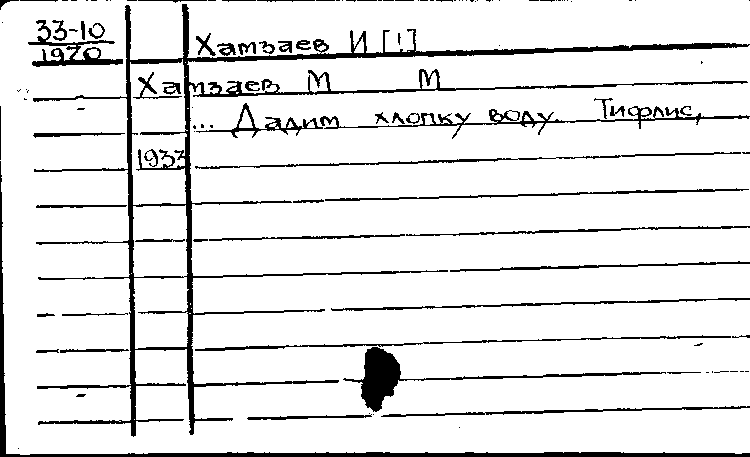 33-10
1970
Хамзаев И [!]
Хамзаев М М
... Дадим хлопку воду. Тифлис,
1933